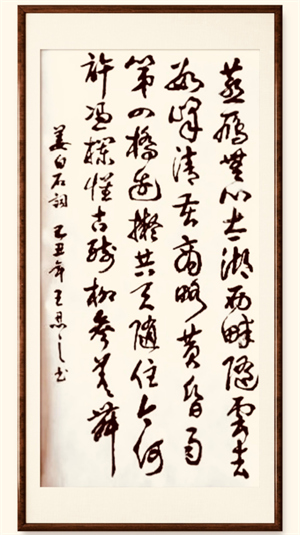 燕雁無心太湖西畔隨雲去
數峰清苦商略黄昏雨
第四橋邊擬共天隨住今何
許憑欄懷古殘柳參差舞
姜白石詞 己丑年 王思之书